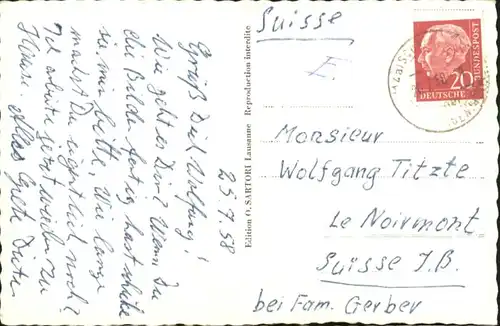 Suisse
E.
20
DEUTSCHE
BUNDESPOST
Monsieur
Wolfgang Titzte
Le Noirmont
Suisse J.B.
bei Fam. Gerber
Edition O. SARTORI Lausanne Reproduction interdite
25.7.58
Grüß Dich Wolfgang!
Wie geht es Dir? Wenn Du
die Bilder fertig hast schicke
sie mir bitte, Wie lange
machst Du eigentlich noch?
Ich arbeite jetzt wieder zu
Hause. Alles Gute Dieter